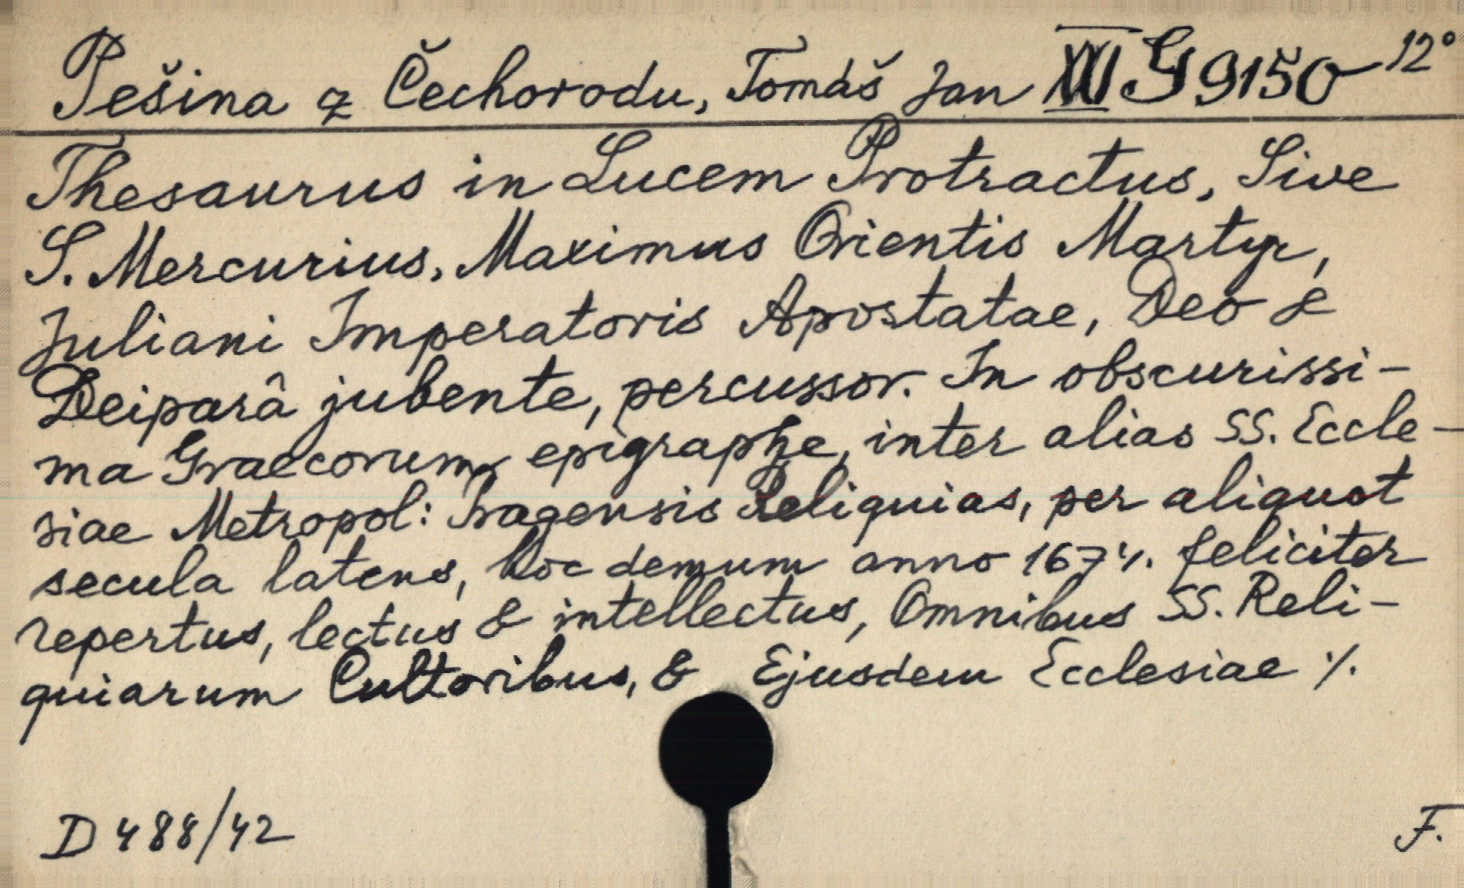 Pešina z Čechorodu, Tomáš Jan XIII G 9150 12°
Thesaurus in Lucem Protractus, Sive
S. Mercurius, Maximus Orientis Martyr,
Juliani Imperatoris Apostatae, Deo &
Deiparâ jubente, percussor. In obscurissi-
ma Graecorum epigraphe, inter alias SS. Eccle-
siae Metropol: Pragensis Reliquias, per aliquot
secula latens, hoc demum anno 1674. feliciter
repertus, lectus & intellectus, Omnibus SS. Reli-
quiarum Cultoribus, & Ejusdem Ecclesiae ./.
D 488/42
F.